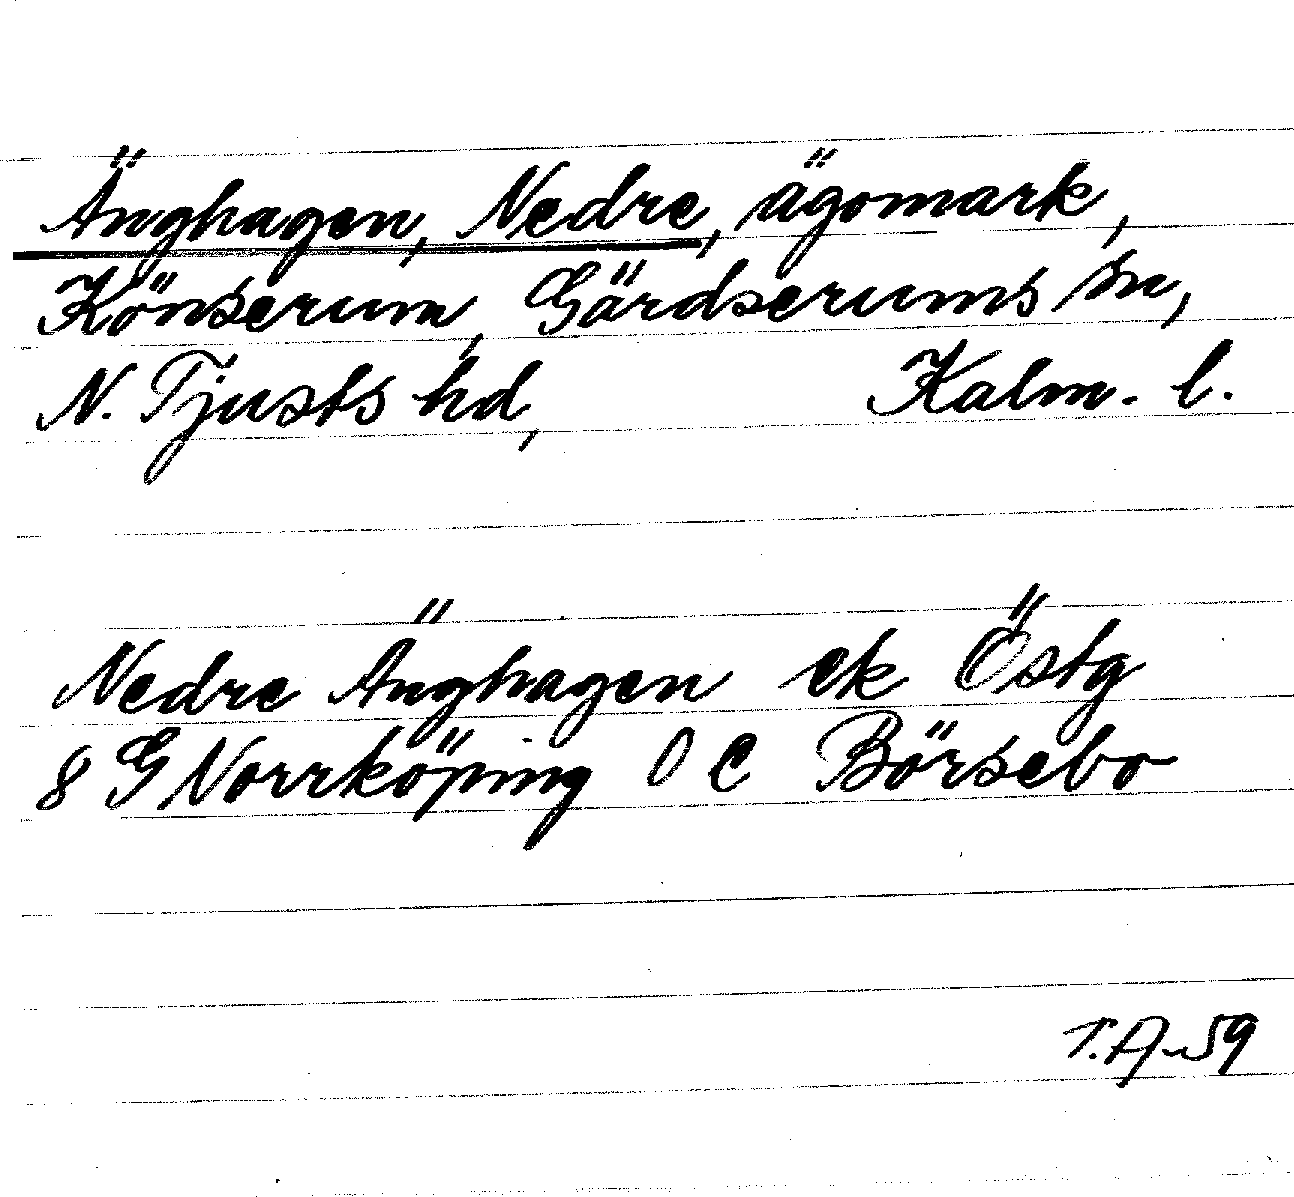 Änghagen, Nedre, ägomark,
Könserum, Gärdserums sn,
N. Tjusts hd, Kalm. l.
Nedre Änghagen ek Östg
8 G Norrköping 0 c Börsebo
T.A. 59